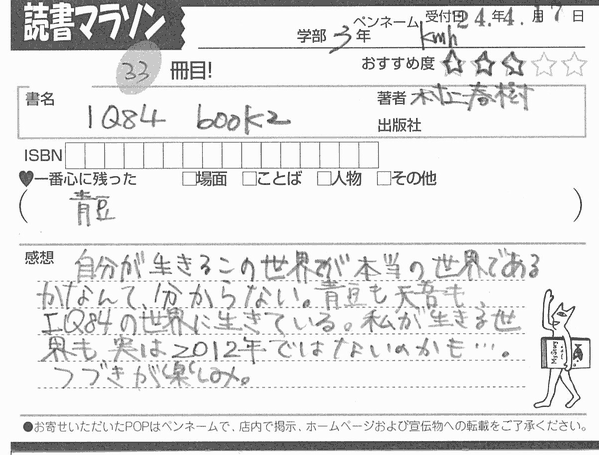 読書マラソン
学部 3年 ペンネーム kmh 受付日 24年4月17日
33 冊目!
おすすめ度 ★★★☆☆
書名 1Q84 book2
著者 村上春樹
出版社
ISBN
♥一番心に残った □場面 □ことば □人物 □その他
( 青豆 )
感想 自分が生きるこの世界が本当の世界である
かなんて、分からない。青豆も天吾も、
1Q84の世界に生きている。私が生きる世
界も、実は2012年ではないのかも…。
つづきが楽しみ。
●お寄せいただいたPOPはペンネームで、店内で掲示、ホームページおよび宣伝物への転載をご了承ください。